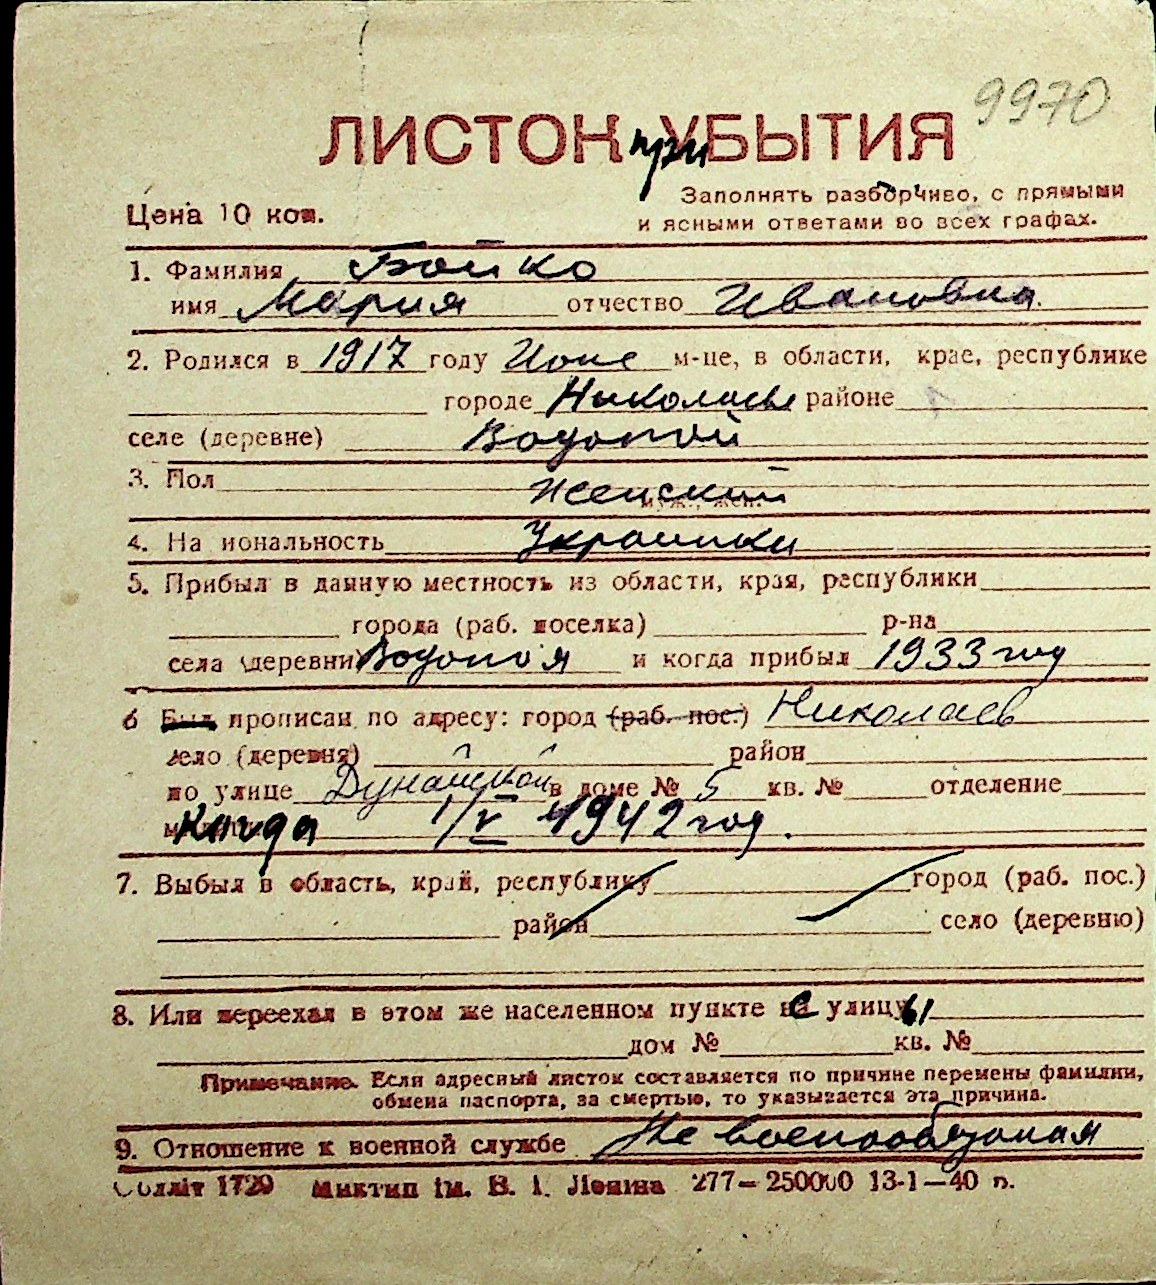 9970
ЛИСТОК при УБЫТИЯ
Заполнять разборчиво, с прямыми
Цена 10 коп.
и ясными ответами во всех графах.
1. Фамилия Бойко
имя Мария отчество Ивановна.
2. Родился в 1917 году Июне м-це, в области, крае, республике
городе Николаеве районе
селе (деревне) Водопой
3. Пол Женский
муж., жен.
4. На иональность Украинка
5. Прибыл в данную местность из области, края, республики
города (раб. поселка) р-на
села (деревни) Водопоя и когда прибыл 1933 год
6 Был прописан по адресу: город (раб. пос.) Николаев
село (деревня) район
по улице Дунайской в доме № 5 кв. № отделение
Когда 1/V 1942 год.
7. Выбыл в область, край, республику город (раб. пос.)
район село (деревню)
8. Или переехал в этом же населенном пункте с улицы
дом № кв. №
Примечание. Если адресный листок составляется по причине перемены фамилии,
обмена паспорта, за смертью, то указывается эта причина.
9. Отношение к военной службе Не военнообязаная
Обллiт 1729 Миктип iм. В. I. Ленiна 277—250000 13-1—40 р.